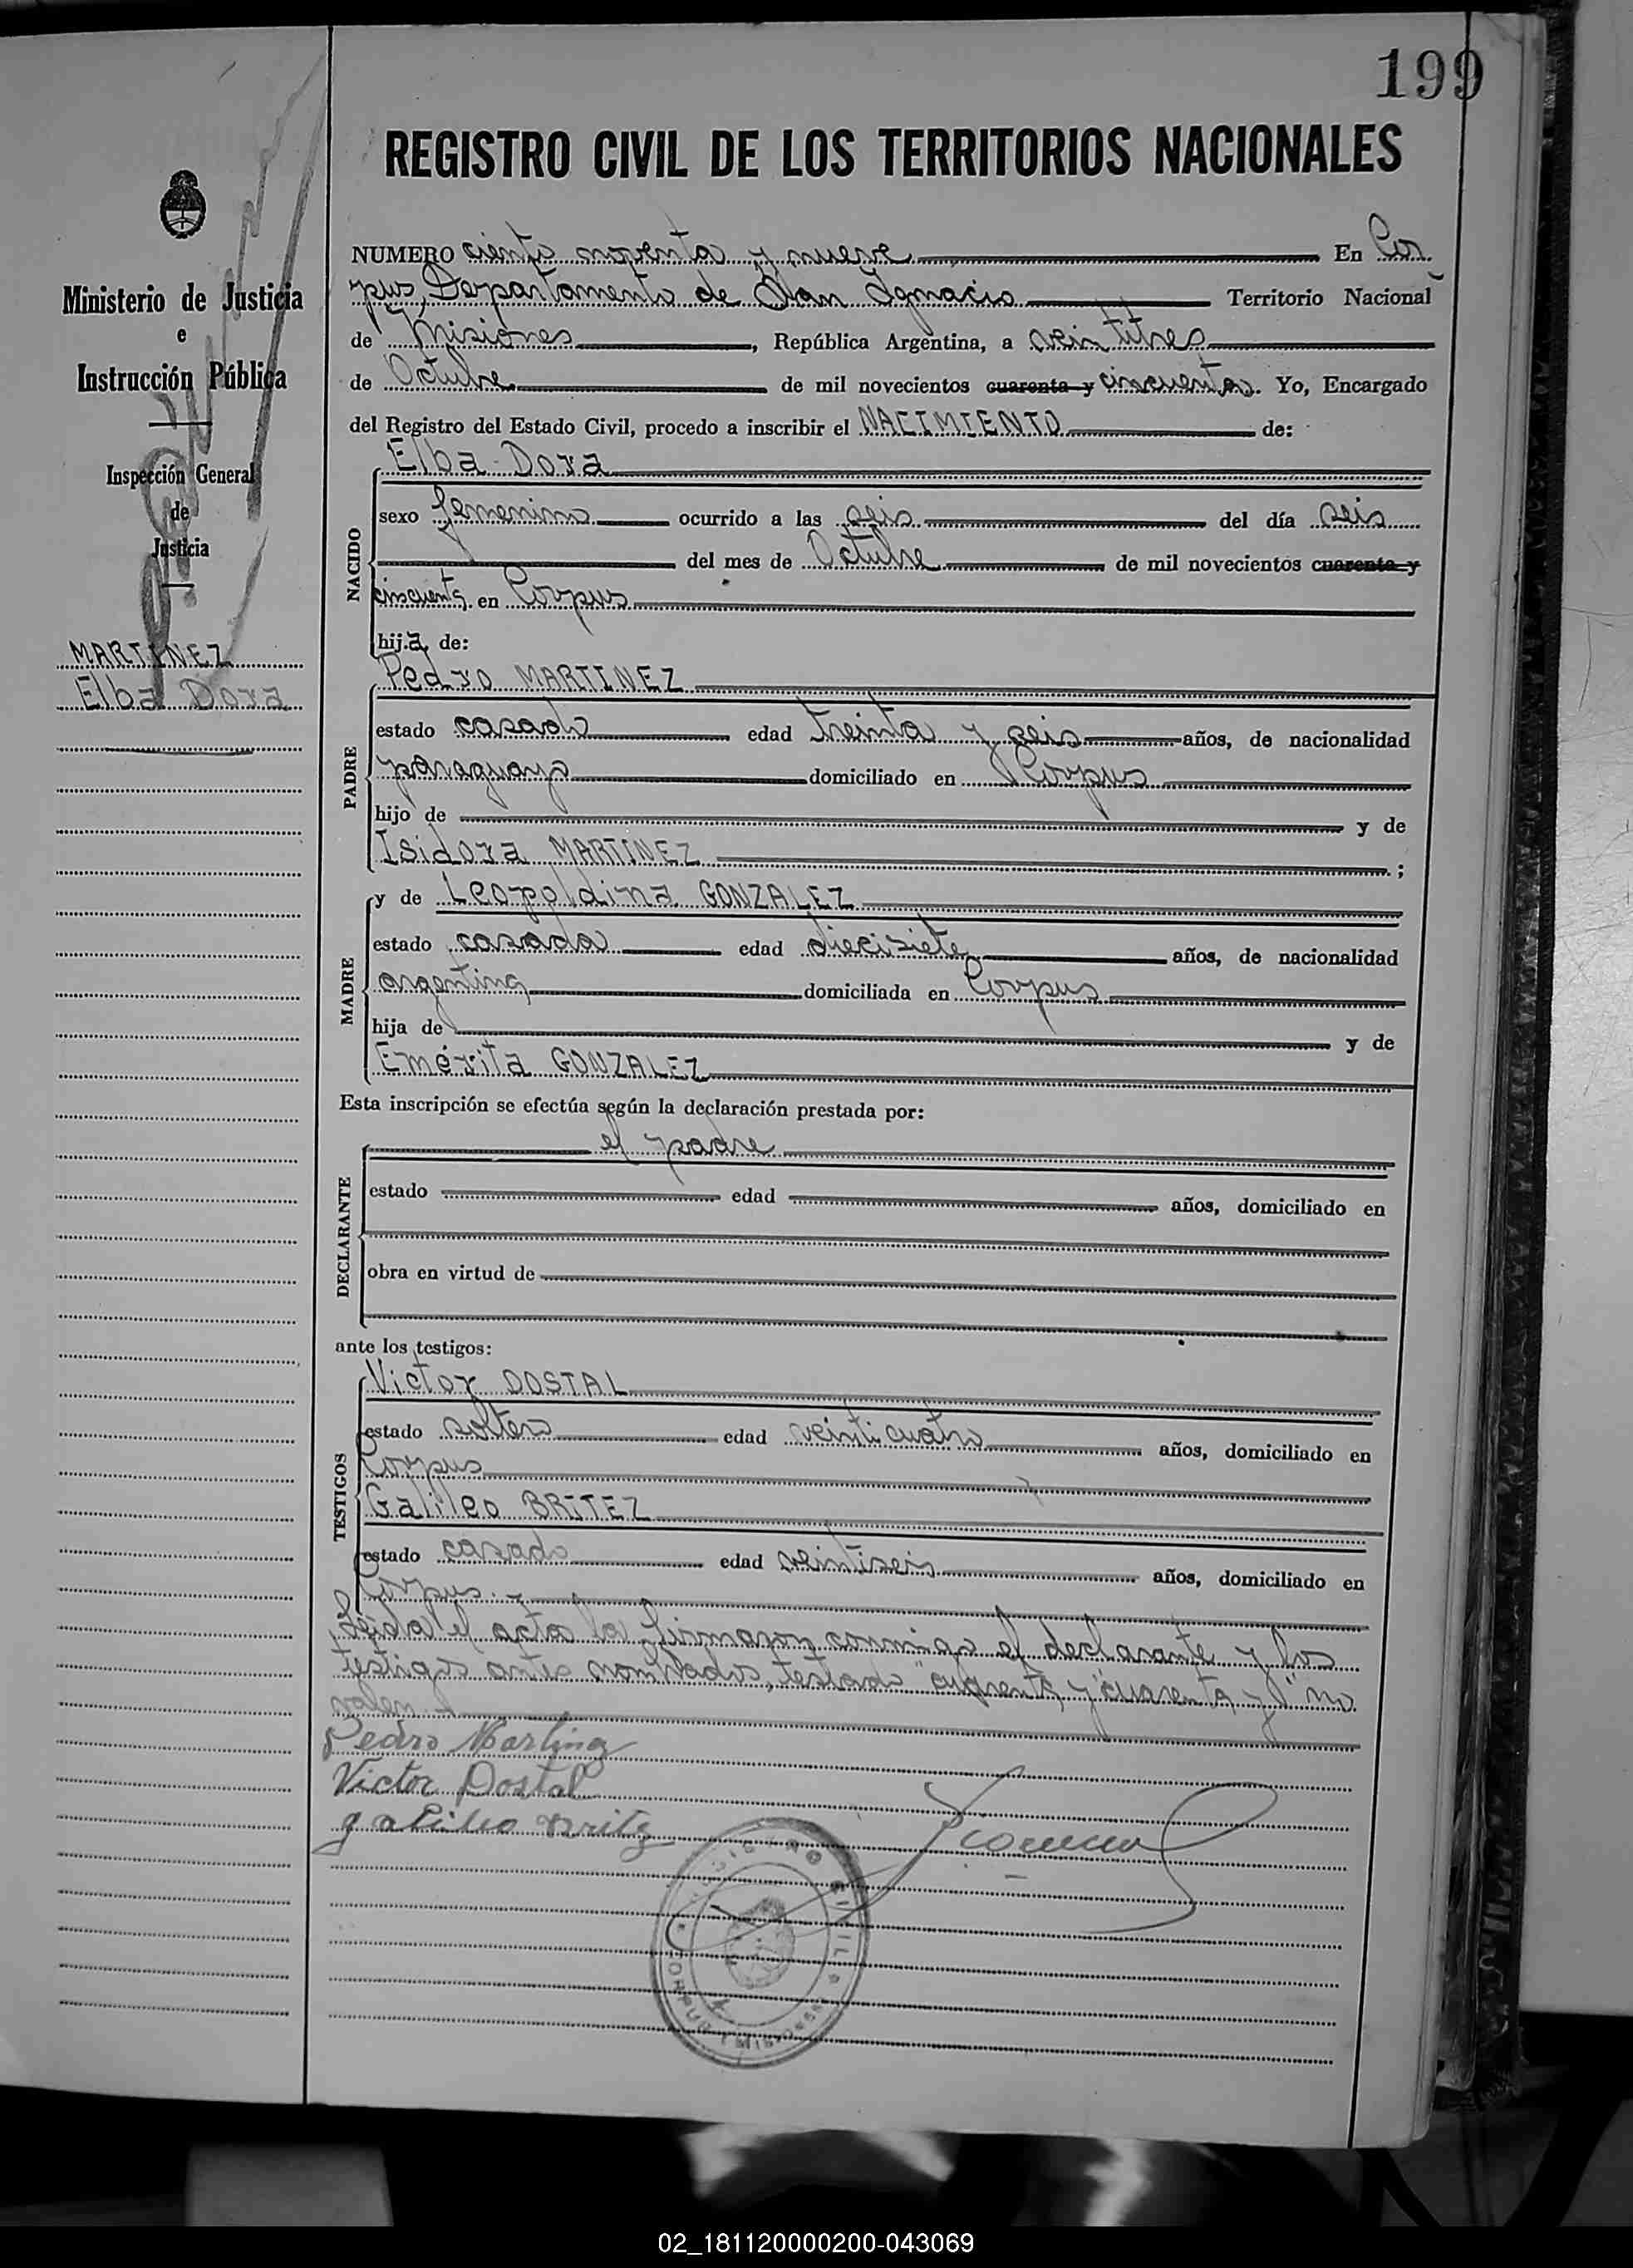 199
REGISTRO CIVIL DE LOS TERRITORIOS NACIONALES
Ministerio de Justicia
e
Instrucción Pública
Inspección General
de
Justicia
MARTINEZ
Elba Dora
NUMERO ciento noventa y nueve En Cor
pus, Departamento de San Ignacio Territorio Nacional
de Misiones, República Argentina, a veintitres
de Octubre de mil novecientos cuarenta y cincuenta. Yo, Encargado
del Registro del Estado Civil, procedo a inscribir el NACIMIENTO de:
NACIDO
Elba Dora
sexo femenino ocurrido a las seis del día seis
del mes de Octubre de mil novecientos cuarenta y
cincuenta en Corpus
hija de:
PADRE
Pedro MARTINEZ
estado casado edad treinta y seis años, de nacionalidad
paraguayo domiciliado en Corpus
hijo de y de
Isidora MARTINEZ ;
MADRE
y de Leopoldina GONZALEZ
estado casada edad diecisiete años, de nacionalidad
argentina domiciliada en Corpus
hija de y de
Emérita GONZALEZ
Esta inscripción se efectúa según la declaración prestada por:
DECLARANTE
el padre
estado edad años, domiciliado en
obra en virtud de
ante los testigos:
TESTIGOS
Victor DOSTAL
estado soltero edad veinticuatro años, domiciliado en
Corpus
Galileo BRITEZ
estado casado edad veintiseis años, domiciliado en
Corpus.
Leida el acta la firmaron conmigo el declarante y los
testigos antes nombrados, testado "cuarenta y" "cuarenta y" no
valen.
Pedro Martinez
Victor Dostal
galileo Britez
REGISTRO CIVIL
CORPUS (Misiones)
02_181120000200-043069